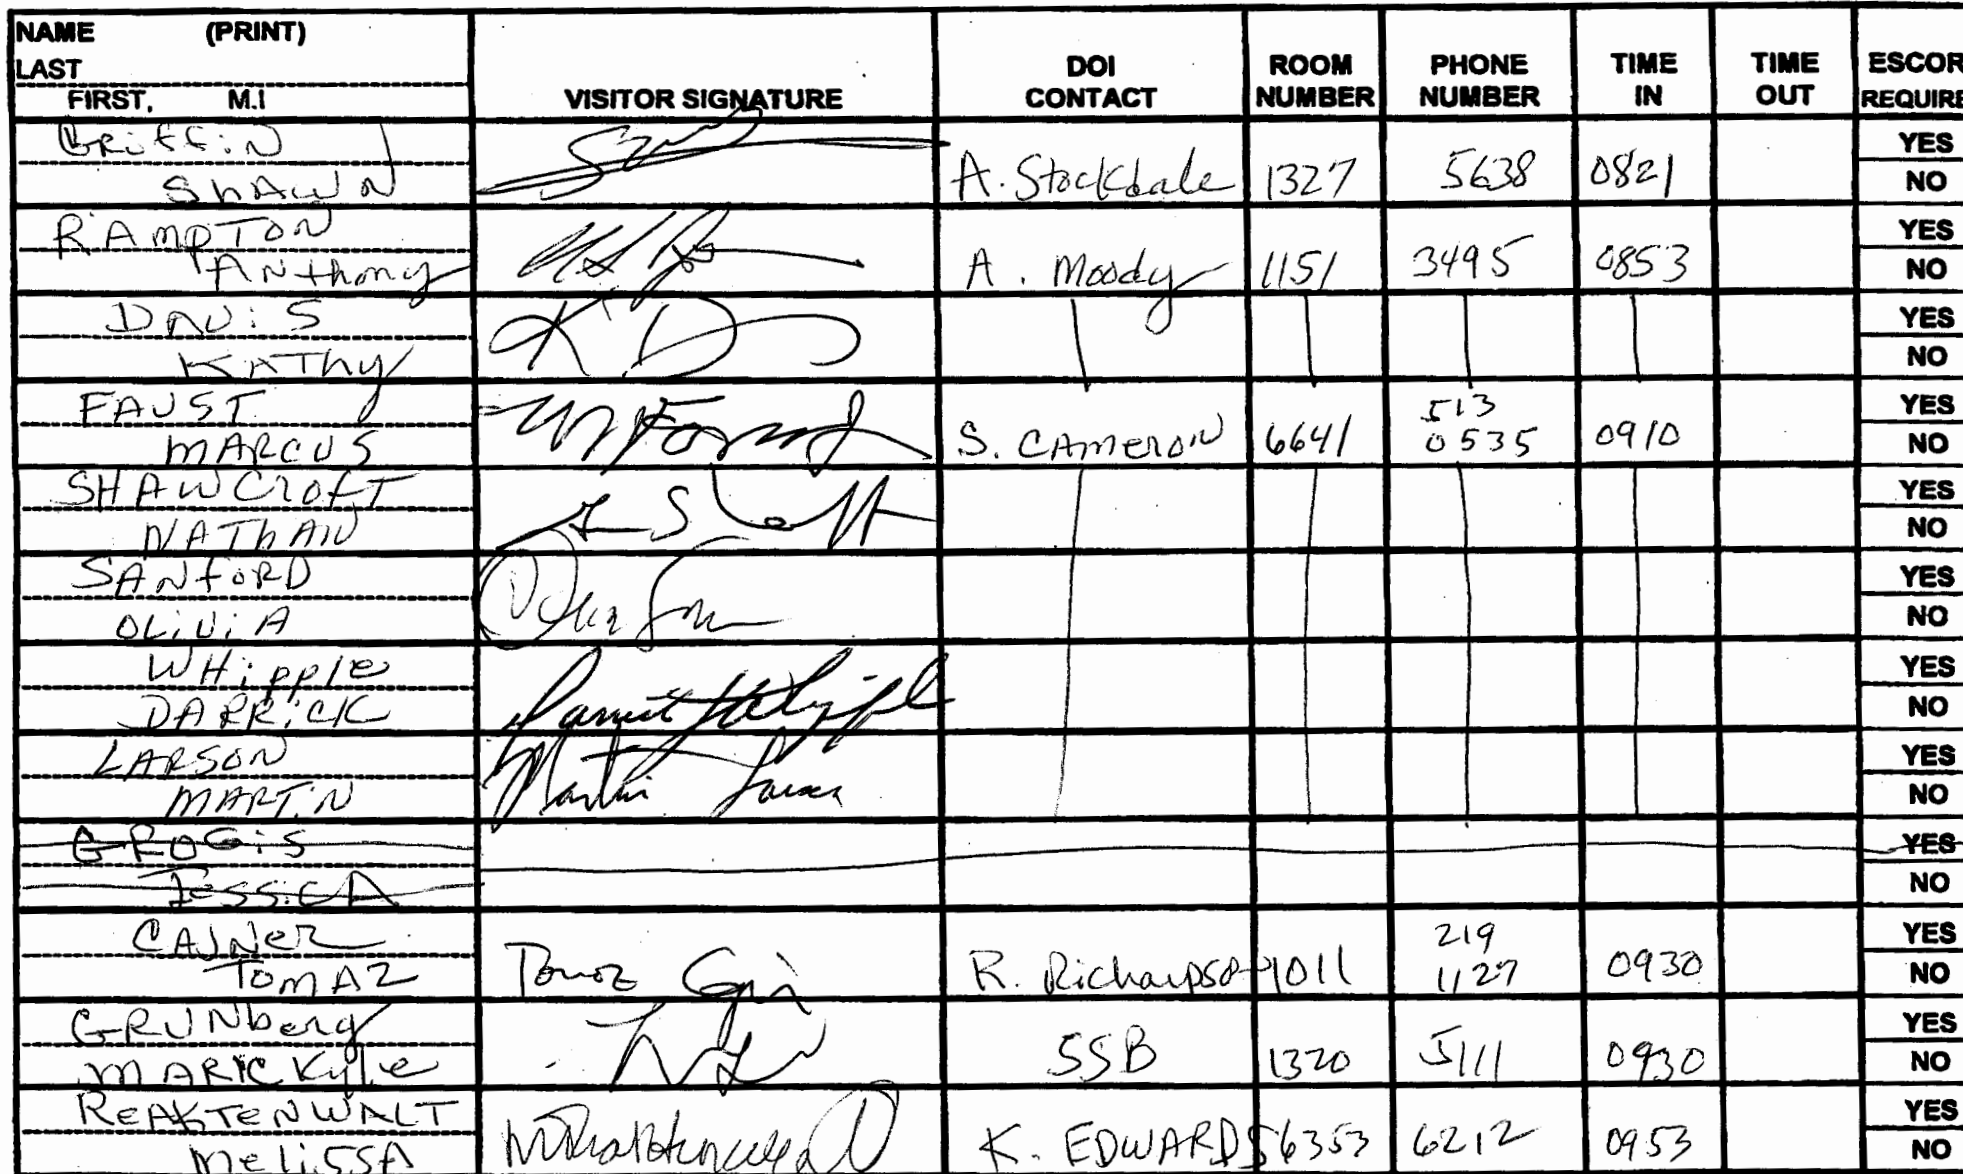 NAME (PRINT)
LAST
FIRST, M.I
VISITOR SIGNATURE
DOI CONTACT
ROOM NUMBER
PHONE NUMBER
TIME IN
TIME OUT
ESCOR
REQUIRE
GRiffiN
SHAWN
A. Stockdale 1327 5638 0821
YES
NO
RAMPTON
ANthony
A. Moody 1151 3495 0853
YES
NO
DAViS
KATHy
K D
YES
NO
FAUST
MARCUS
S. CAMERON 6641 513 0535 0910
YES
NO
SHAWCROFT
NATHAN
YES
NO
SANfORD
OLiViA
YES
NO
WHipple
DARRiCK
YES
NO
LARSON
MARTiN
Martin Larson
YES
NO
GROGiS
JESSiCA
YES
NO
CAJNER
TOMAZ
R. Richardson 1011 219 1127 0930
YES
NO
GRUNberg
MARK Kyle
SSB 1320 5111 0930
YES
NO
REAKTENWALT
MeLiSSA
K. EDWARDS 6353 6212 0953
YES
NO